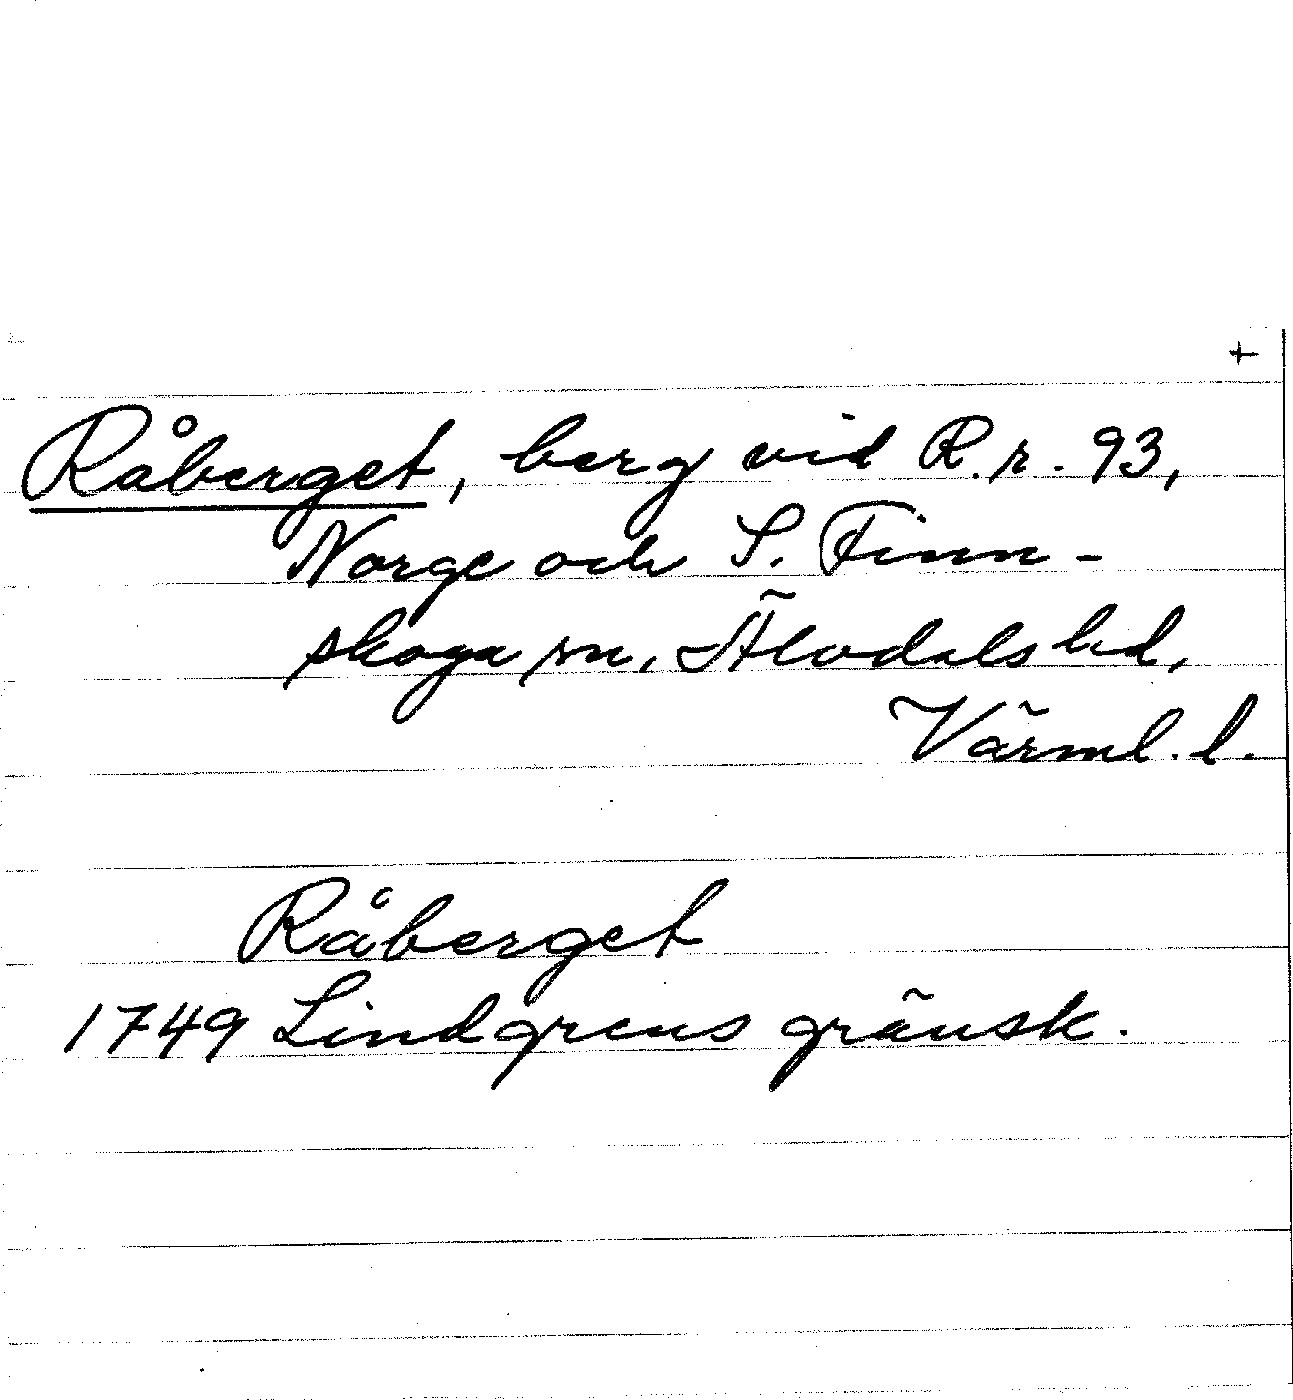 +
Råberget, berg vid R.r. 93,
Norge och S. Finn-
skoga sn, Älvdals hd,
Värml. l.
Råberget
1749 Lindgrens gränsk.